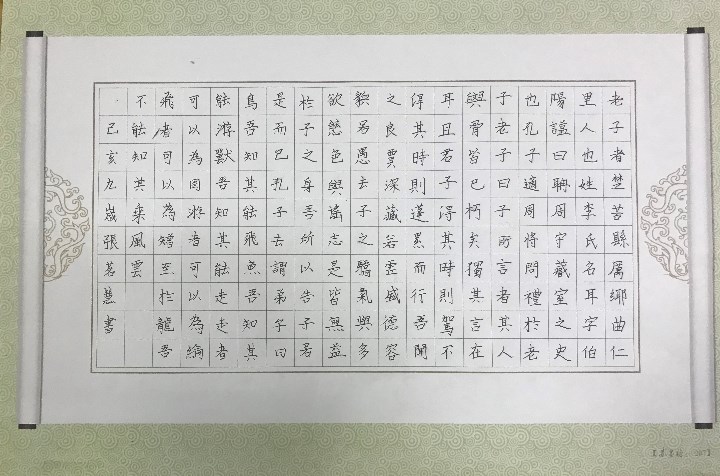 老子者楚苦縣厲鄉曲仁
里人也姓李氏名耳字伯
陽謚曰聃周守藏室之史
也孔子適周將問禮於老
子老子曰子所言者其人
與骨皆已朽矣獨其言在
耳且君子得其時則駕不
得其時則蓬累而行吾聞
之良賈深藏若虛盛德容
貌若愚去子之驕氣與多
欲態色與淫志是皆無益
於子之身吾所以告子若
是而已孔子去謂弟子曰
鳥吾知其能飛魚吾知其
能游獸吾知其能走走者
可以為罔游者可以為綸
飛者可以為矰至於龍吾
不能知其乘風雲
己亥九歲張茗慧書